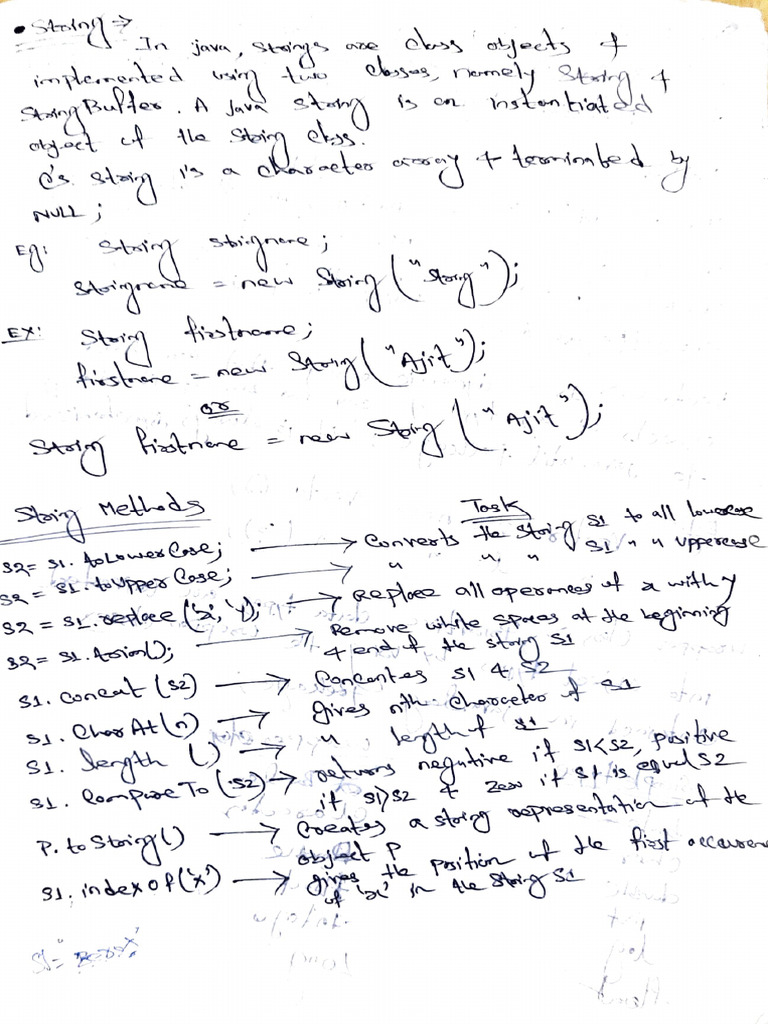 • String ⇒
In java, strings are class objects &
implemented using two classes, namely String &
StringBuffer. A java string is an instantiated
object of the string class.
C's string is a character array & terminated by
NULL;
Eg: String stringname;
stringname = new String("String");
EX: String firstname;
firstname = new String("Ajit");
or
String firstname = new String("Ajit");
String Methods Task
s2 = s1.toLowerCase; → Converts the string s1 to all lowercase
s2 = s1.toUpperCase; → " " " s1 " " uppercase
s2 = s1.replace('x','y'); → Replace all of x with y
s2 = s1.trim(); → Remove white spaces at the beginning
& end of the string s1
s1.concat(s2) → s1 & s2
s1.CharAt(n) → gives nth character of s1
s1.length() → " length of s1
s1.CompareTo(s2) → returns negative if s1<s2, positive
if s1>s2 & zero if s1 is equal s2
P.toString() → Creates a string representation of the
object P
s1.indexOf('x') → gives the position of the first
of 'x' in the string s1